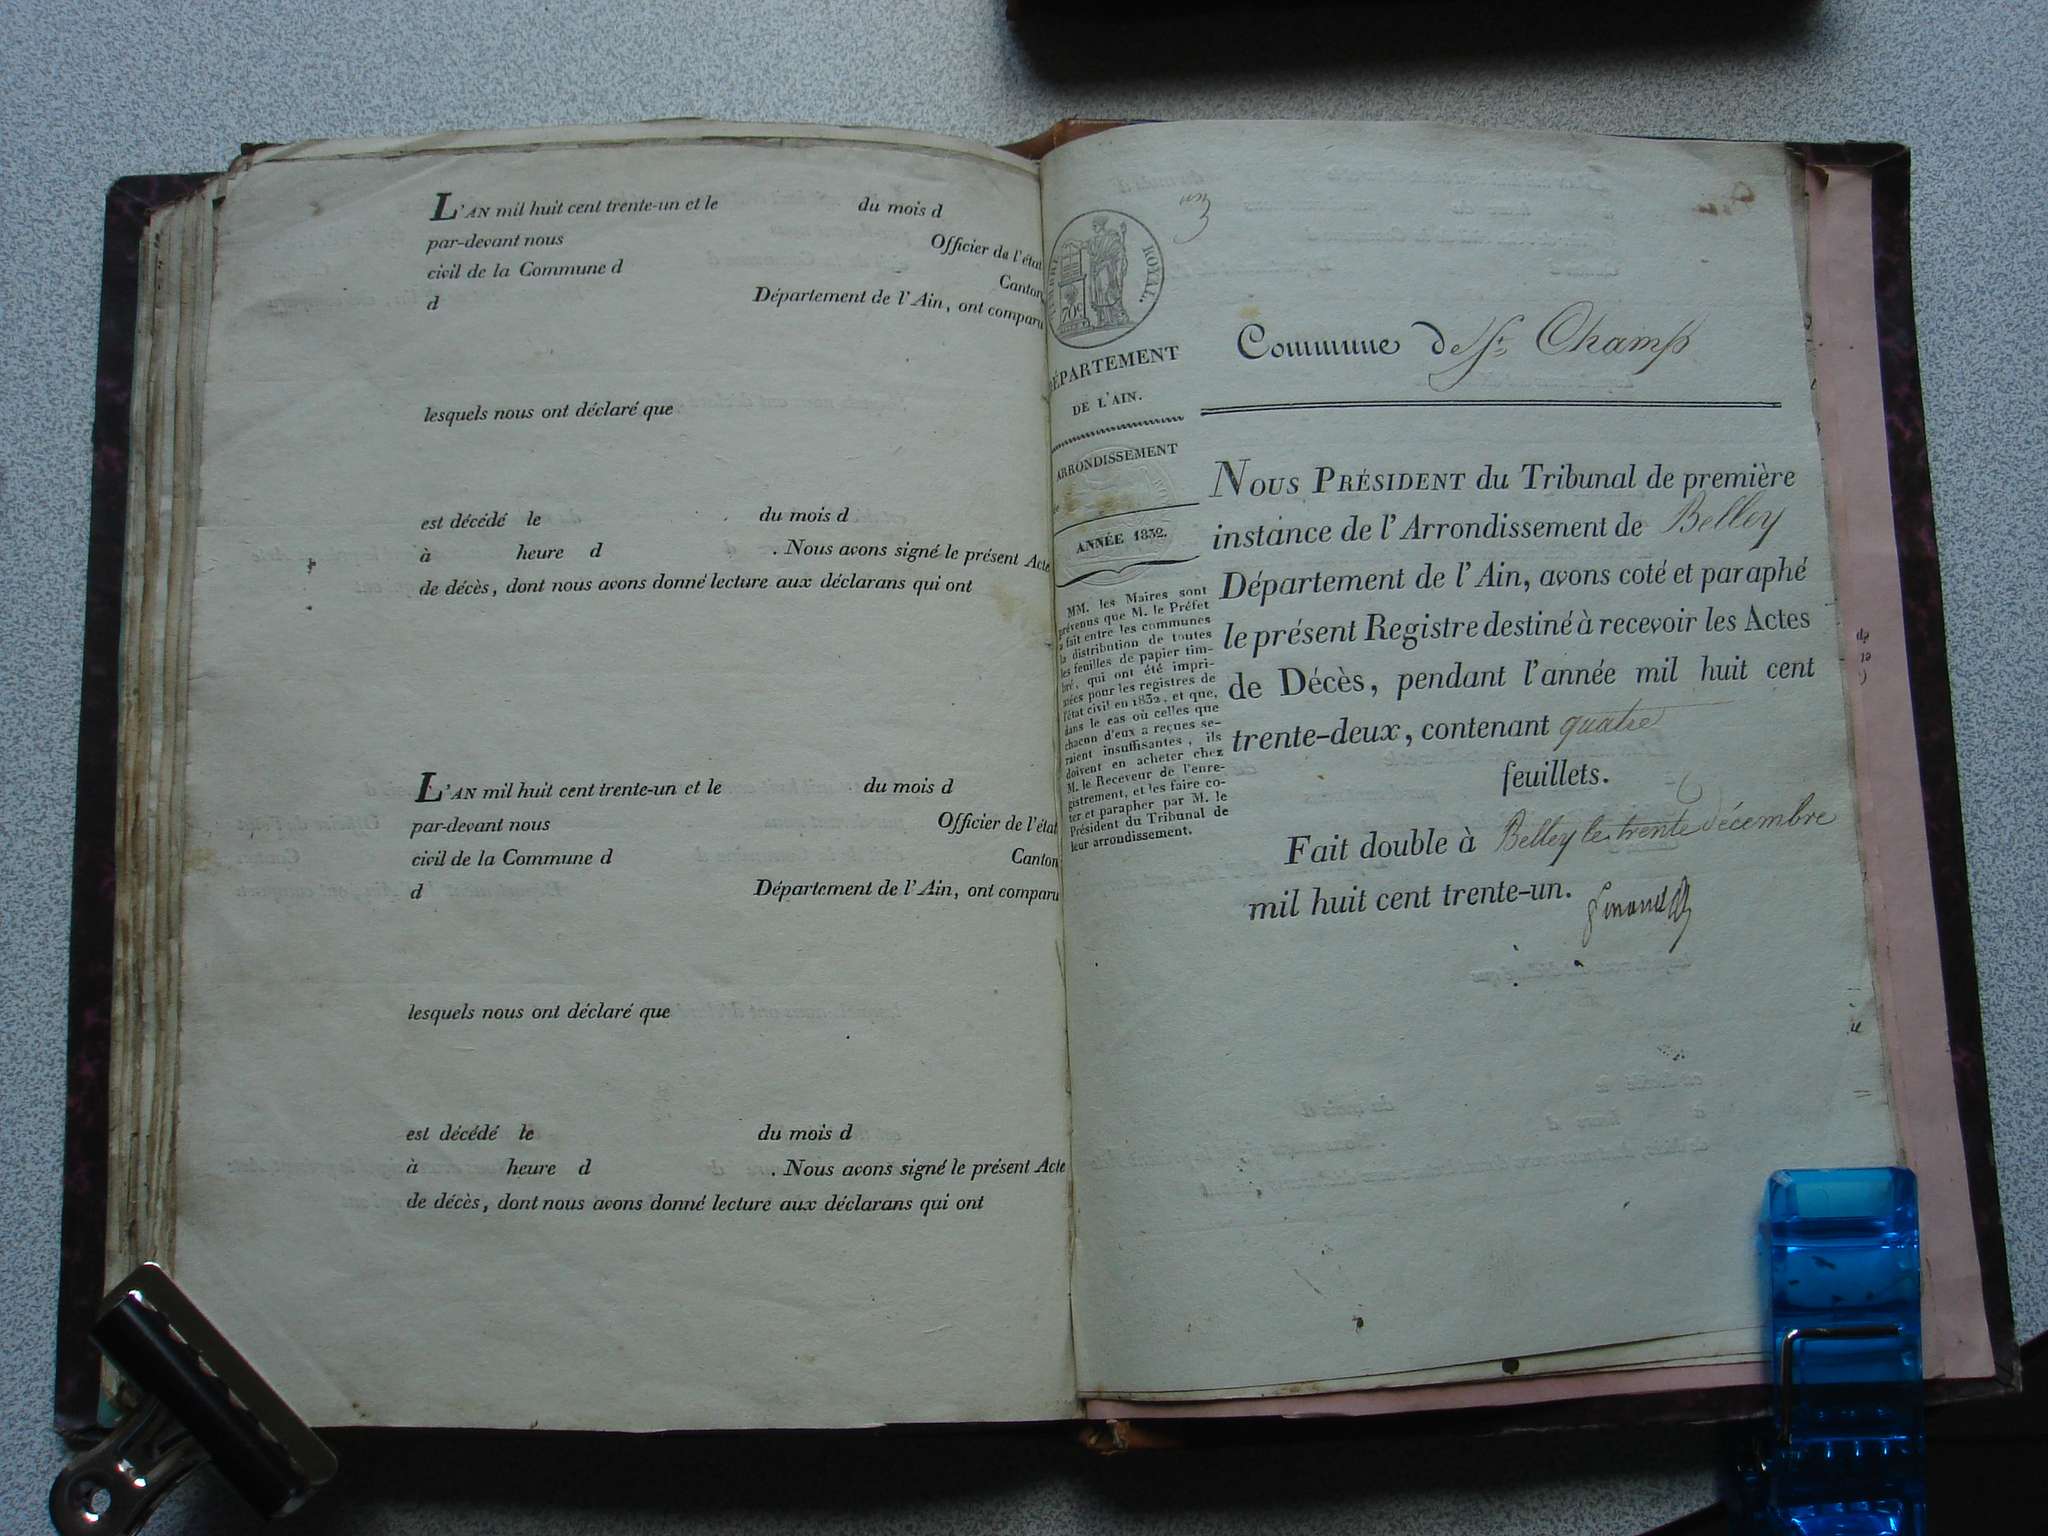 L'AN mil huit cent trente-un et le du mois d
par-devant nous Officier de l'état
civil de la Commune d Canton
d Département de l'Ain, ont comparu
lesquels nous ont déclaré que
est décédé le du mois d
à heure d . Nous avons signé le présent Acte
de décès, dont nous avons donné lecture aux déclarans qui ont
L'AN mil huit cent trente-un et le du mois d
par-devant nous Officier de l'état
civil de la Commune d Canton
d Département de l'Ain, ont comparu
lesquels nous ont déclaré que
est décédé le du mois d
à heure d . Nous avons signé le présent Acte
de décès, dont nous avons donné lecture aux déclarans qui ont
ROYAL.
70c
DÉPARTEMENT
DE L'AIN.
ARRONDISSEMENT
de
ANNÉE 1832.
MM. les Maires sont
prévenus que M. le Préfet
a fait entre les communes
la distribution de toutes
les feuilles de papier tim-
bré, qui ont été impri-
mées pour les registres de
l'état civil en 1832, et que,
dans le cas où celles que
chacun d'eux a reçues se-
raient insuffisantes, ils
doivent en acheter chez
M. le Receveur de l'enre-
gistrement, et les faire co-
ter et parapher par M. le
Président du Tribunal de
leur arrondissement.
Commune de St Champ
NOUS PRÉSIDENT du Tribunal de première
instance de l'Arrondissement de Belley
Département de l'Ain, avons coté et paraphé
le présent Registre destiné à recevoir les Actes
de Décès, pendant l'année mil huit cent
trente-deux, contenant quatre
feuillets.
Fait double à Belley le trente décembre
mil huit cent trente-un.